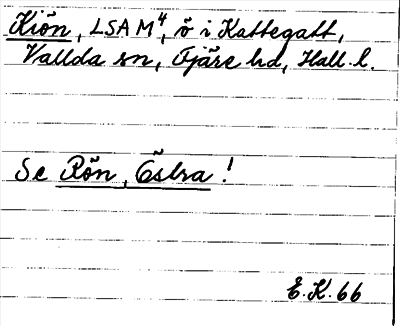 Kiön, LSA M⁴, ö i Kattegatt,
Vallda sn, Fjäre hd, Hall. l.
Se Rön, Östra!
E.K. 66